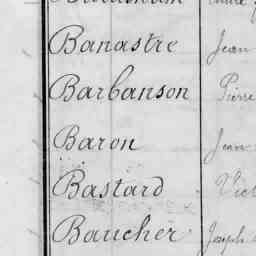 Banastre Jean
Barbanson Pierre
Baron Jean
Bastard Vict
Baucher Joseph